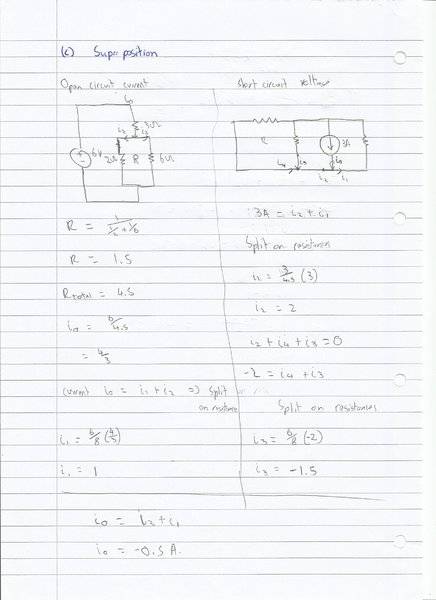 (c) Superposition
Open circuit current
i₀
3Ω
i₂ i₁
6V
2Ω R 6Ω
R = 1/(1/2 + 1/6)
R = 1.5
R total = 4.5
i₀ = 6/4.5
= 4/3
Current i₀ = i₁ + i₂ => Split
on resistance
i₁ = 6/8 (4/3)
i₁ = 1
Short circuit voltage
R 3A
i₄ i₃ i₀
i₂ i₁
3A = i₂ + i₁
Split on resistances
i₂ = 3/4.5 (3)
i₂ = 2
i₂ + i₄ + i₃ = 0
-2 = i₄ + i₃
Split on resistances
i₃ = 6/8 (-2)
i₃ = -1.5
i₀ = i₂ + i₁
i₀ = -0.5 A.